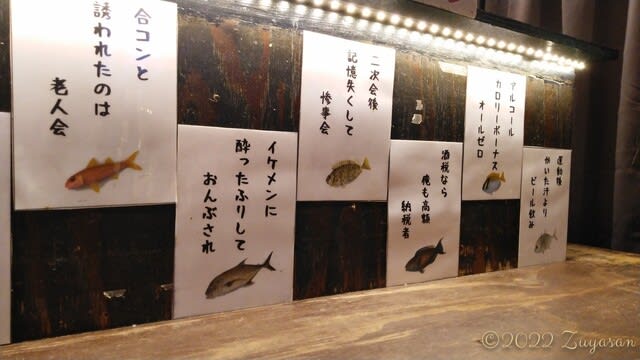 合コンと
誘われたのは
老人会
イケメンに
酔ったふりして
おんぶされ
二次会後
記憶失くして
惨事会
酒税なら
俺も高額
納税者
アルコール
カロリーボーナス
オールゼロ
運動後
かいた汗より
ビール飲み
©2022 Zuyasan